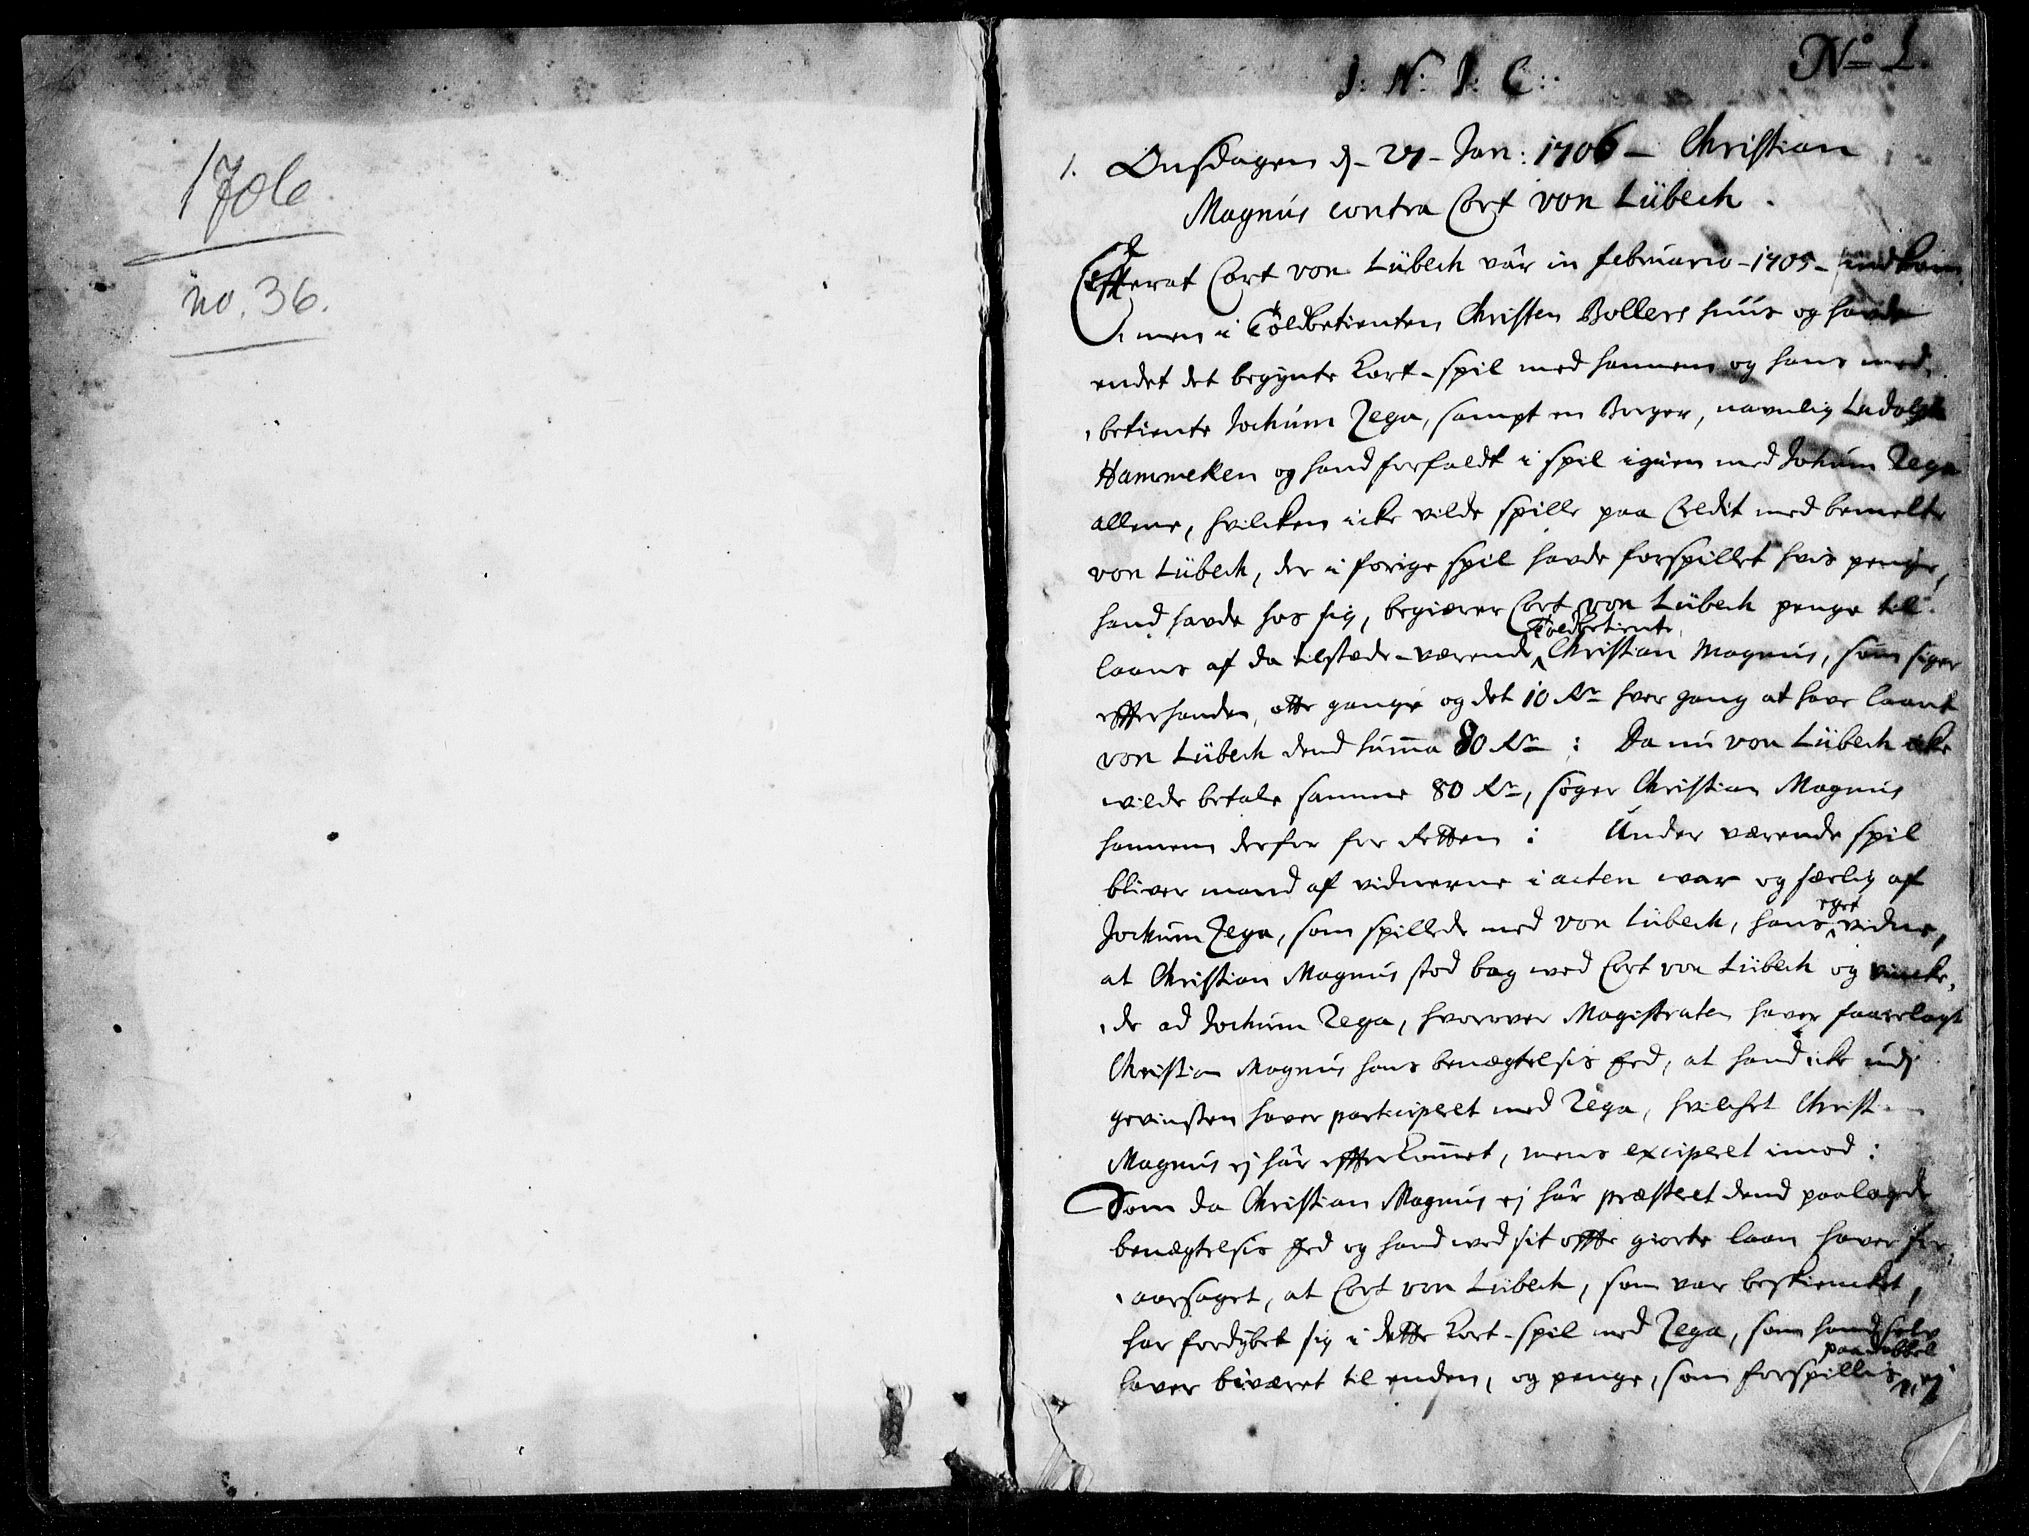 1706
no. 36.
No 1.
J: N: J: C:
1. Onsdagen d. 27 Jan: 1706 – Christian
Magnus contra Cort von Lübech.
Effterat Cort von Lübech vår in februario 1705 indkom
men i Toldbetienten Christen Bollers huus og hafde
endet det begynte Kort-spil med hannem og hans med
betiente Jochum Zega, sampt en Borger, navnlig Ladolph
Hammeken og hand forfaldt i spil igien med Jochum Zega
allene, hvilcken icke vilde spille paa Credit med bemelte
von Lübech, der i forige spil hafde forspillet hvis penge,
hand hafde hos sig, begiærer Cort von Lübech penge til
Toldbetiente
laans af da tilstæde-værende Christian Magnus, som siger
effterhanden otte gange og det 10 Rdr hver gang at have laant
von Lübech dend summa 80 Rdr : Da nu von Lübech icke
wilde betale samme 80 Rdr, søger Christian Magnus
hannem derfor for Retten : Under værende spil
bliver mand af vidnerne i acten war og særlig af
eget
Jochum Zega, som spillede med von Lübech, hans vidne,
at Christian Magnus stod bag wed Cort von Lübech og vincke
de ad Jochum Zega, hvorover Magistraten haver faarelagt
Christian Magnus hans benægtelsis Eed, at hand icke udj
gevinsten haver participeret med Zega, hvilchet Christian
Magnus ej hår effterkommet, mens exciperet imod :
Som da Christian Magnus ej hår præsteret dend paalagde
benægtelsis Eed og hand wed sit offte giorte laan haver for
aarsaget, at Cort von Lübech, som var beskiencket,
har fordybet sig i dette Kort-spil med Zega, som hand selv
paa dobbel
haver biværet til enden, og penge, som forspillis, ej